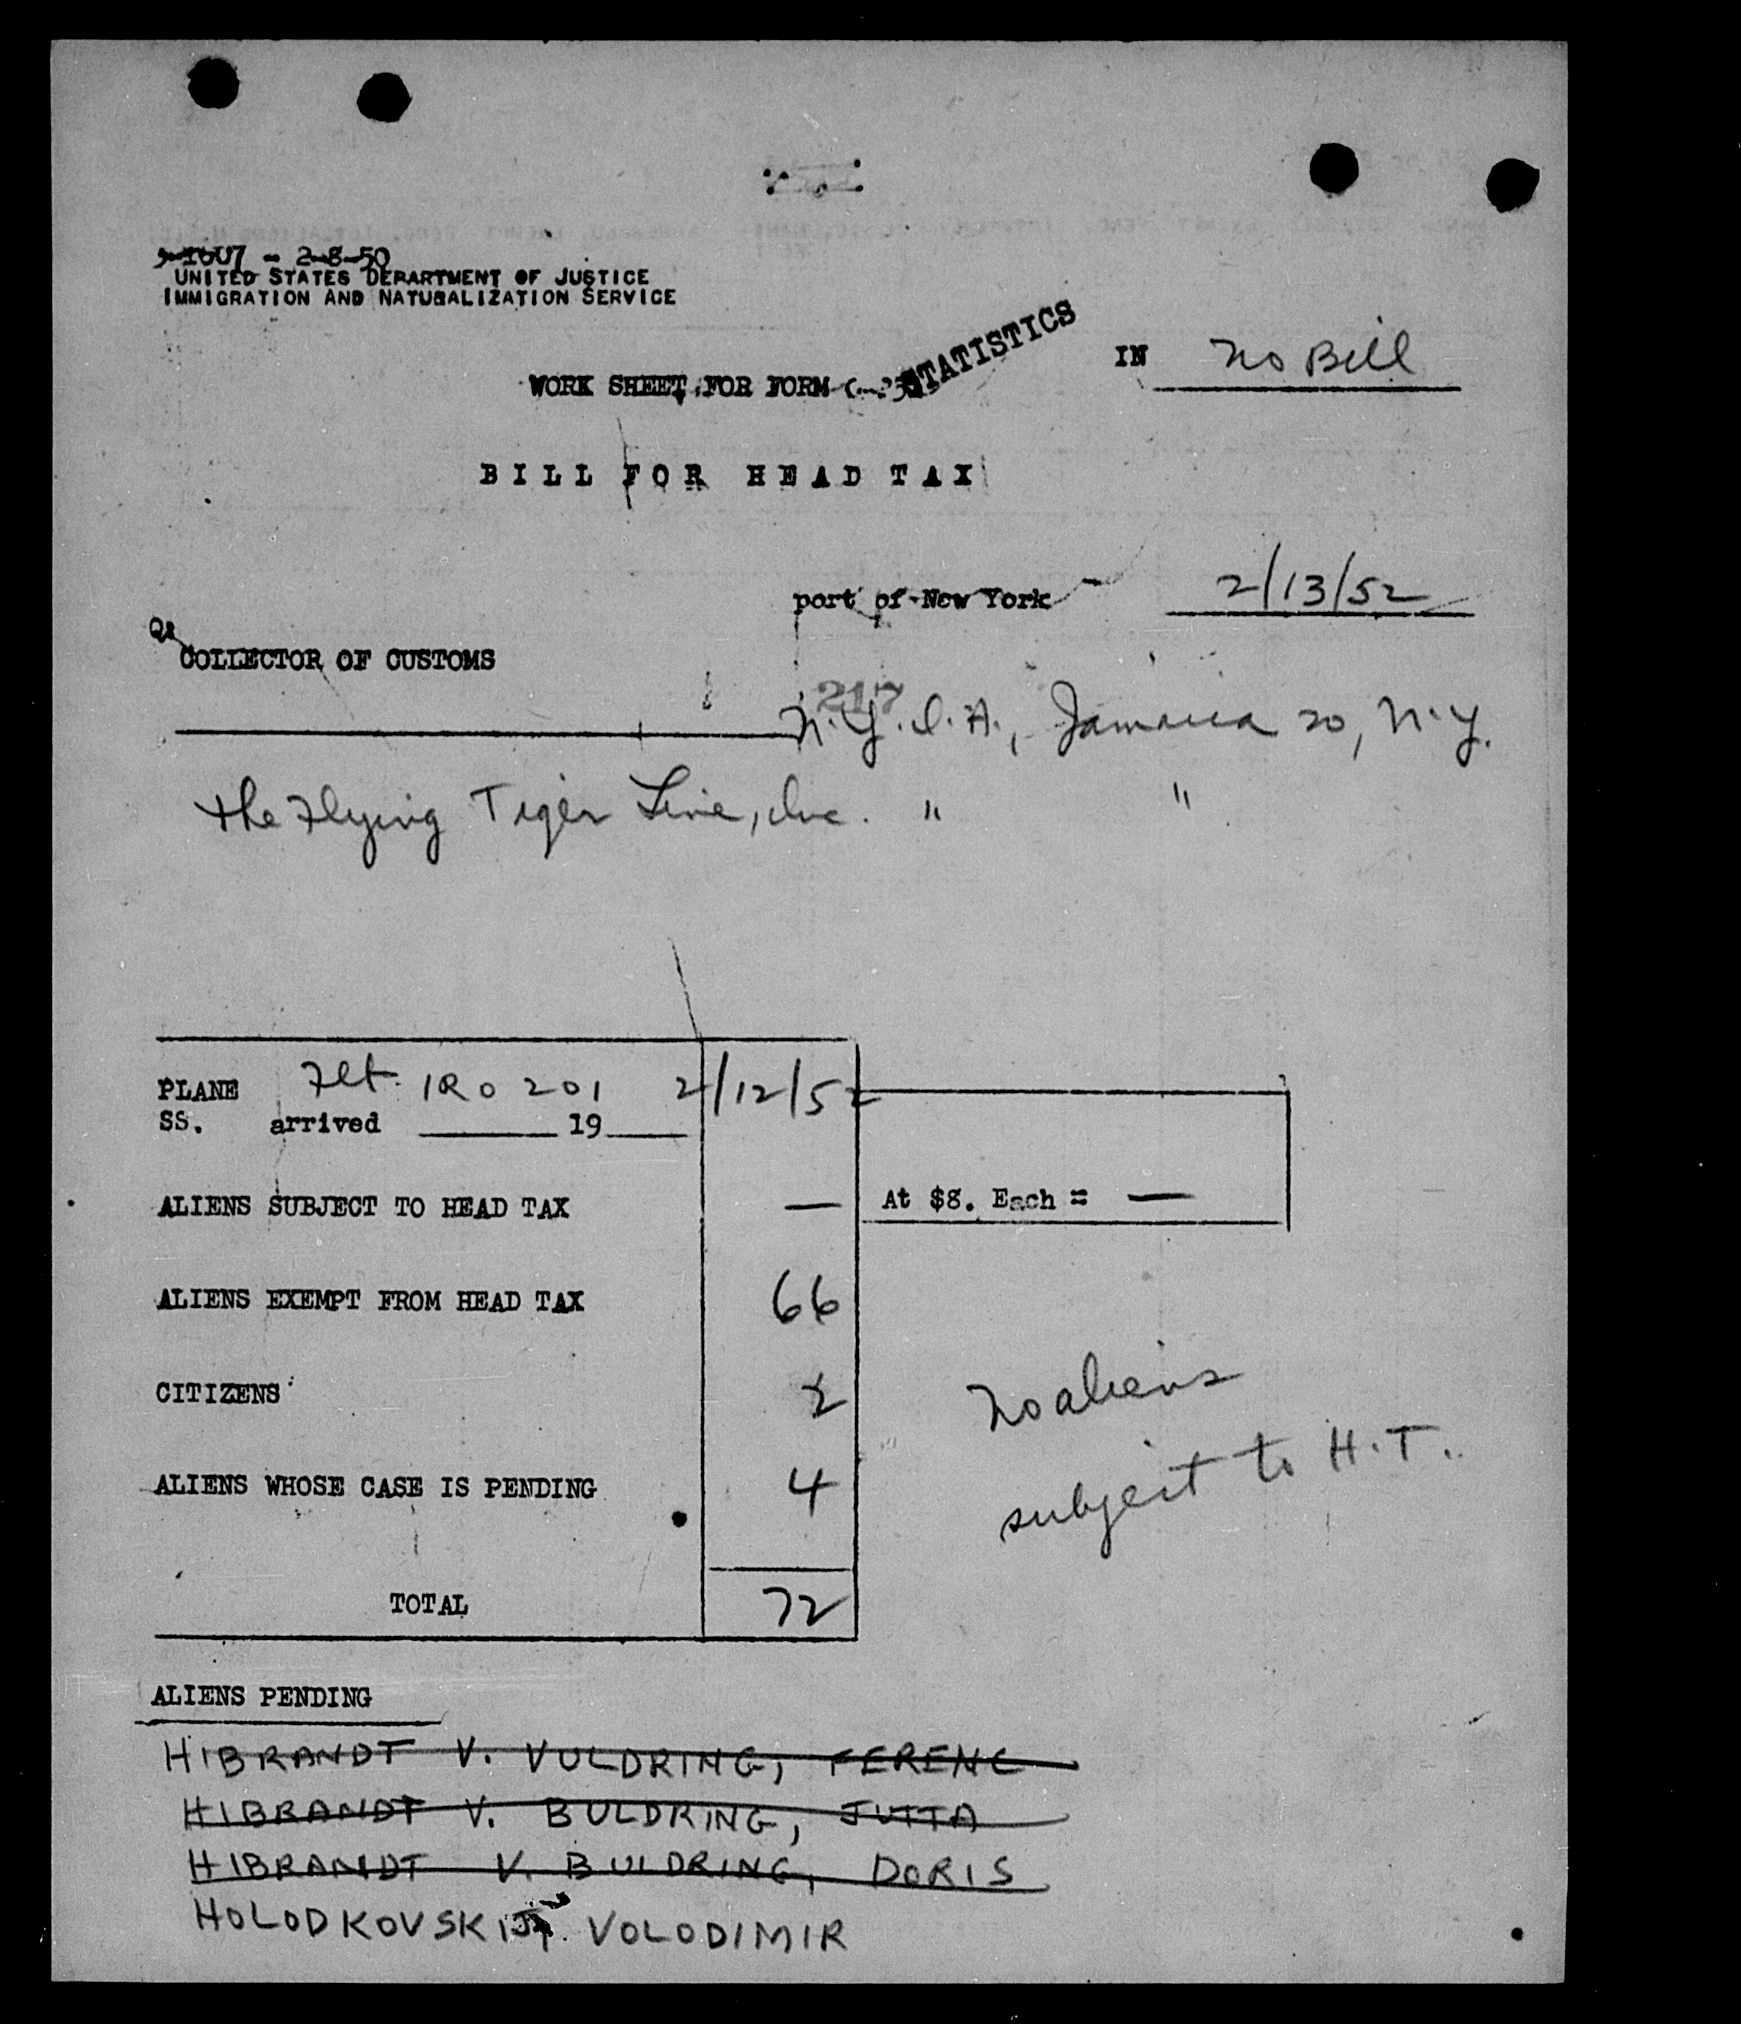 1607 - 2-8-50
UNITED STATES DEPARTMENT OF JUSTICE
IMMIGRATION AND NATURALIZATION SERVICE
STATISTICS
IN No Bill
WORK SHEET FOR FORM
BILL FOR HEAD TAX
port of New York 2/13/52
COLLECTOR OF CUSTOMS
217
N.Y.I.A., Jamaica 20, N.Y.
The Flying Tiger Line, Inc. " "
PLANE Flt. IRO 201 2/12/52
SS. arrived ______ 19____
ALIENS SUBJECT TO HEAD TAX — At $8. Each = —
ALIENS EXEMPT FROM HEAD TAX 66
CITIZENS 2
No aliens
subject to H.T.
ALIENS WHOSE CASE IS PENDING 4
TOTAL 72
ALIENS PENDING
HIBRANDT V. VULDRING, FERENC
HIBRANDT V. BULDRING, JUTTA
HIBRANDT V. BULDRING, DORIS
HOLODKOVSKIJ, VOLODIMIR